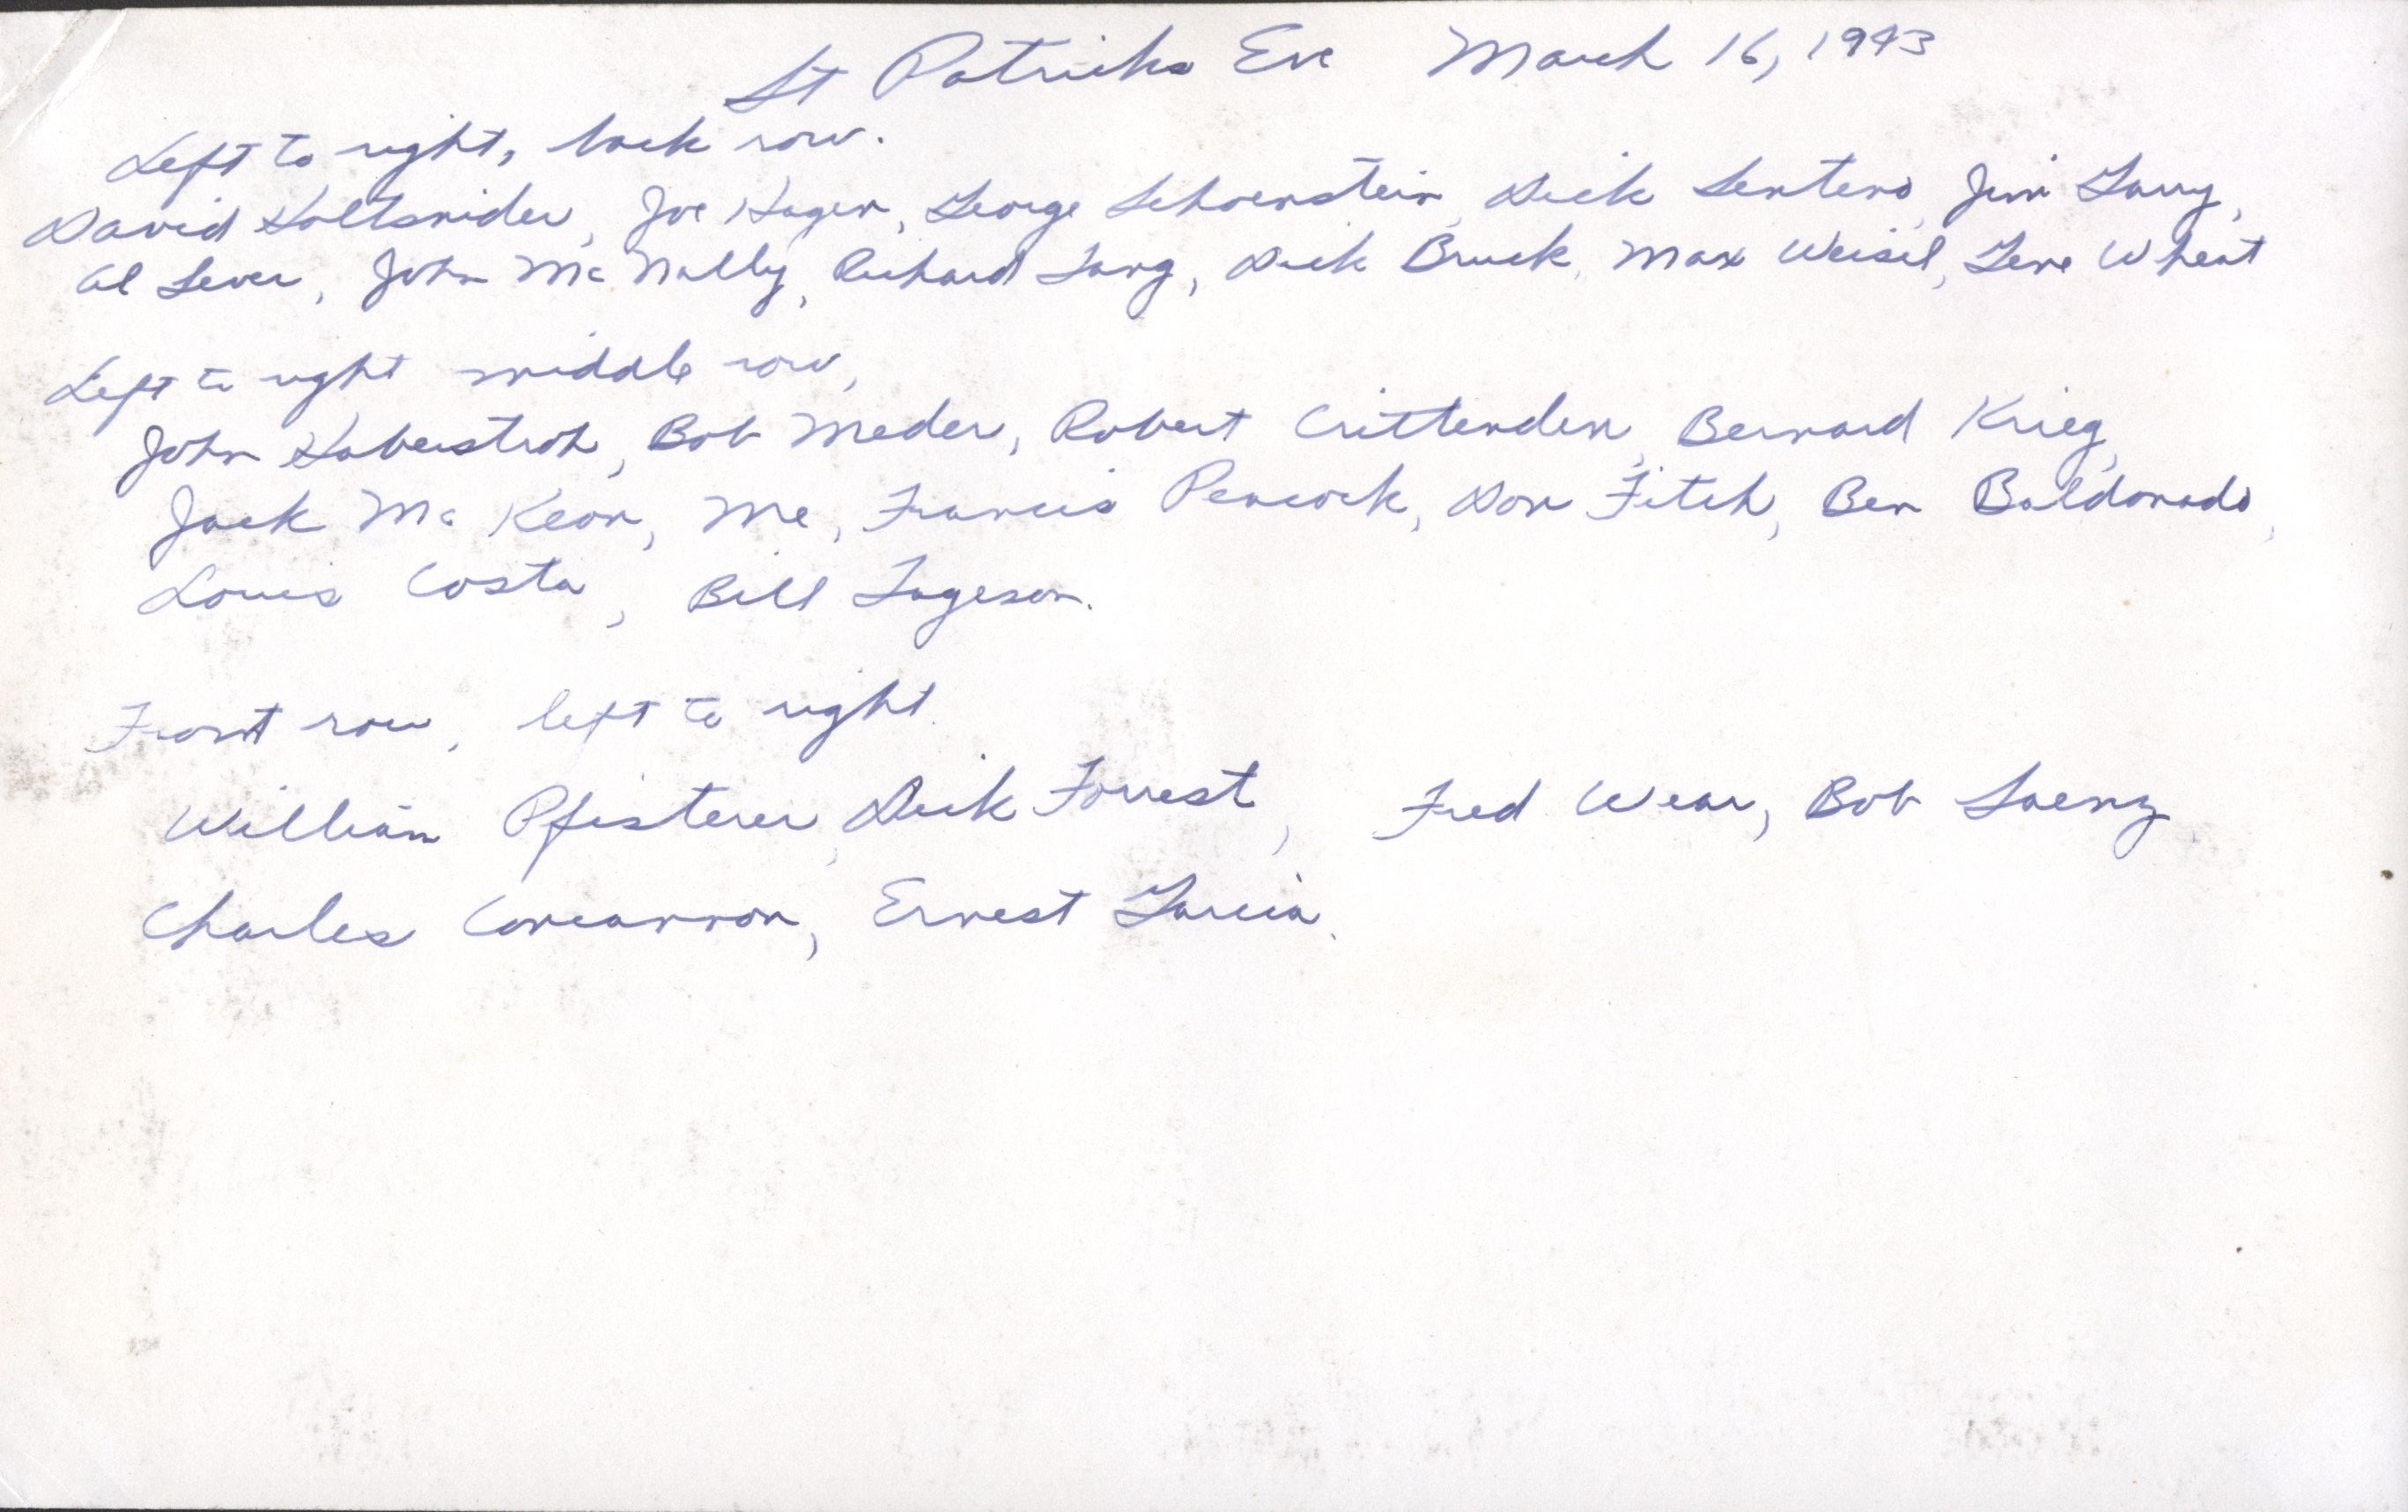 St Patricks Eve March 16, 1943
Left to right, back row.
David Holtsnider, Joe Hagen, George Schoenstein, Dick Senteno, Jim Garry,
Al Lever, John McNally, Richard Lang, Dick Bruck, Max Weisel, Gene Wheat
Left to right middle row,
John Haberstroh, Bob Meder, Robert Crittenden, Bernard Krieg,
Jack McKeon, Me, Francis Peacock, Don Fitch, Ben Baldonado,
Louis Costa, Bill Lageson.
Front row, left to right.
William Pfisterer, Dick Forrest, Fred Wear, Bob Saenz
Charles Concannon, Ernest Garcia.